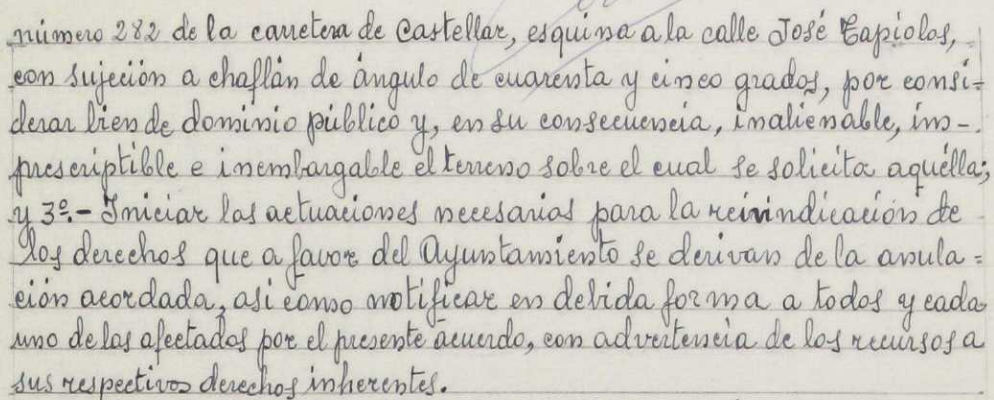 número 282 de la carretera de Castellar, esquina a la calle José Tapiolas,
con sujeción a chaflán de ángulo de cuarenta y cinco grados, por consi=
derar bien de dominio público y, en su consecuencia, inalienable, im-
prescriptible e inembargable el terreno sobre el cual se solicita aquélla;
y 3º.- Iniciar las actuaciones necesarias para la reivindicación de
los derechos que a favor del Ayuntamiento se derivan de la anula=
ción acordada, asi como notificar en debida forma a todos y cada
uno de los afectados por el presente acuerdo, con advertencia de los recursos a
sus respectivos derechos inherentes.